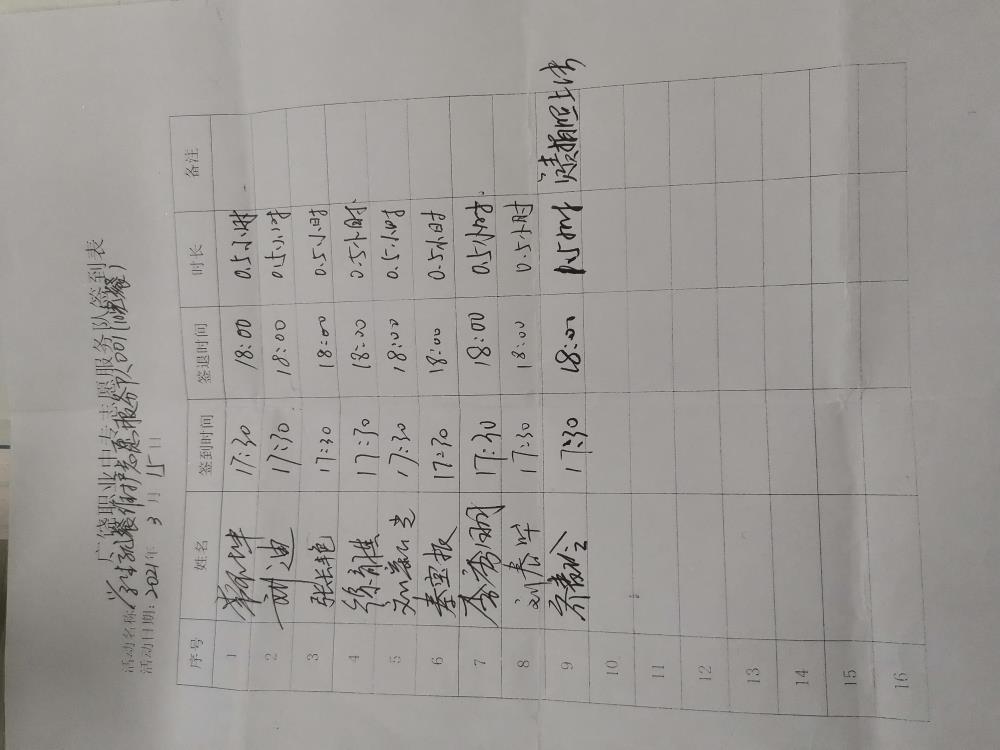 广饶职业中专志愿服务队签到表
活动名称:学生就餐维护志愿服务队001(晚餐)
活动日期:2021年 3 月 15 日
序号 姓名 签到时间 签退时间 时长 备注
1 17:30 18:00 0.5小时
2 刘迪 17:30 18:00 0.5小时
3 张长艳 17:30 18:00 0.5小时
4 17:30 18:00 0.5小时
5 17:30 18:00 0.5小时
6 秦宝振 17:30 18:00 0.5小时
7 李秀丽 17:30 18:00 0.5小时.
8 刘春军 17:30 18:00 0.5小时
9 17:30 18:00 0.5小时 负责拍照上传
10
11
12
13
14
15
16